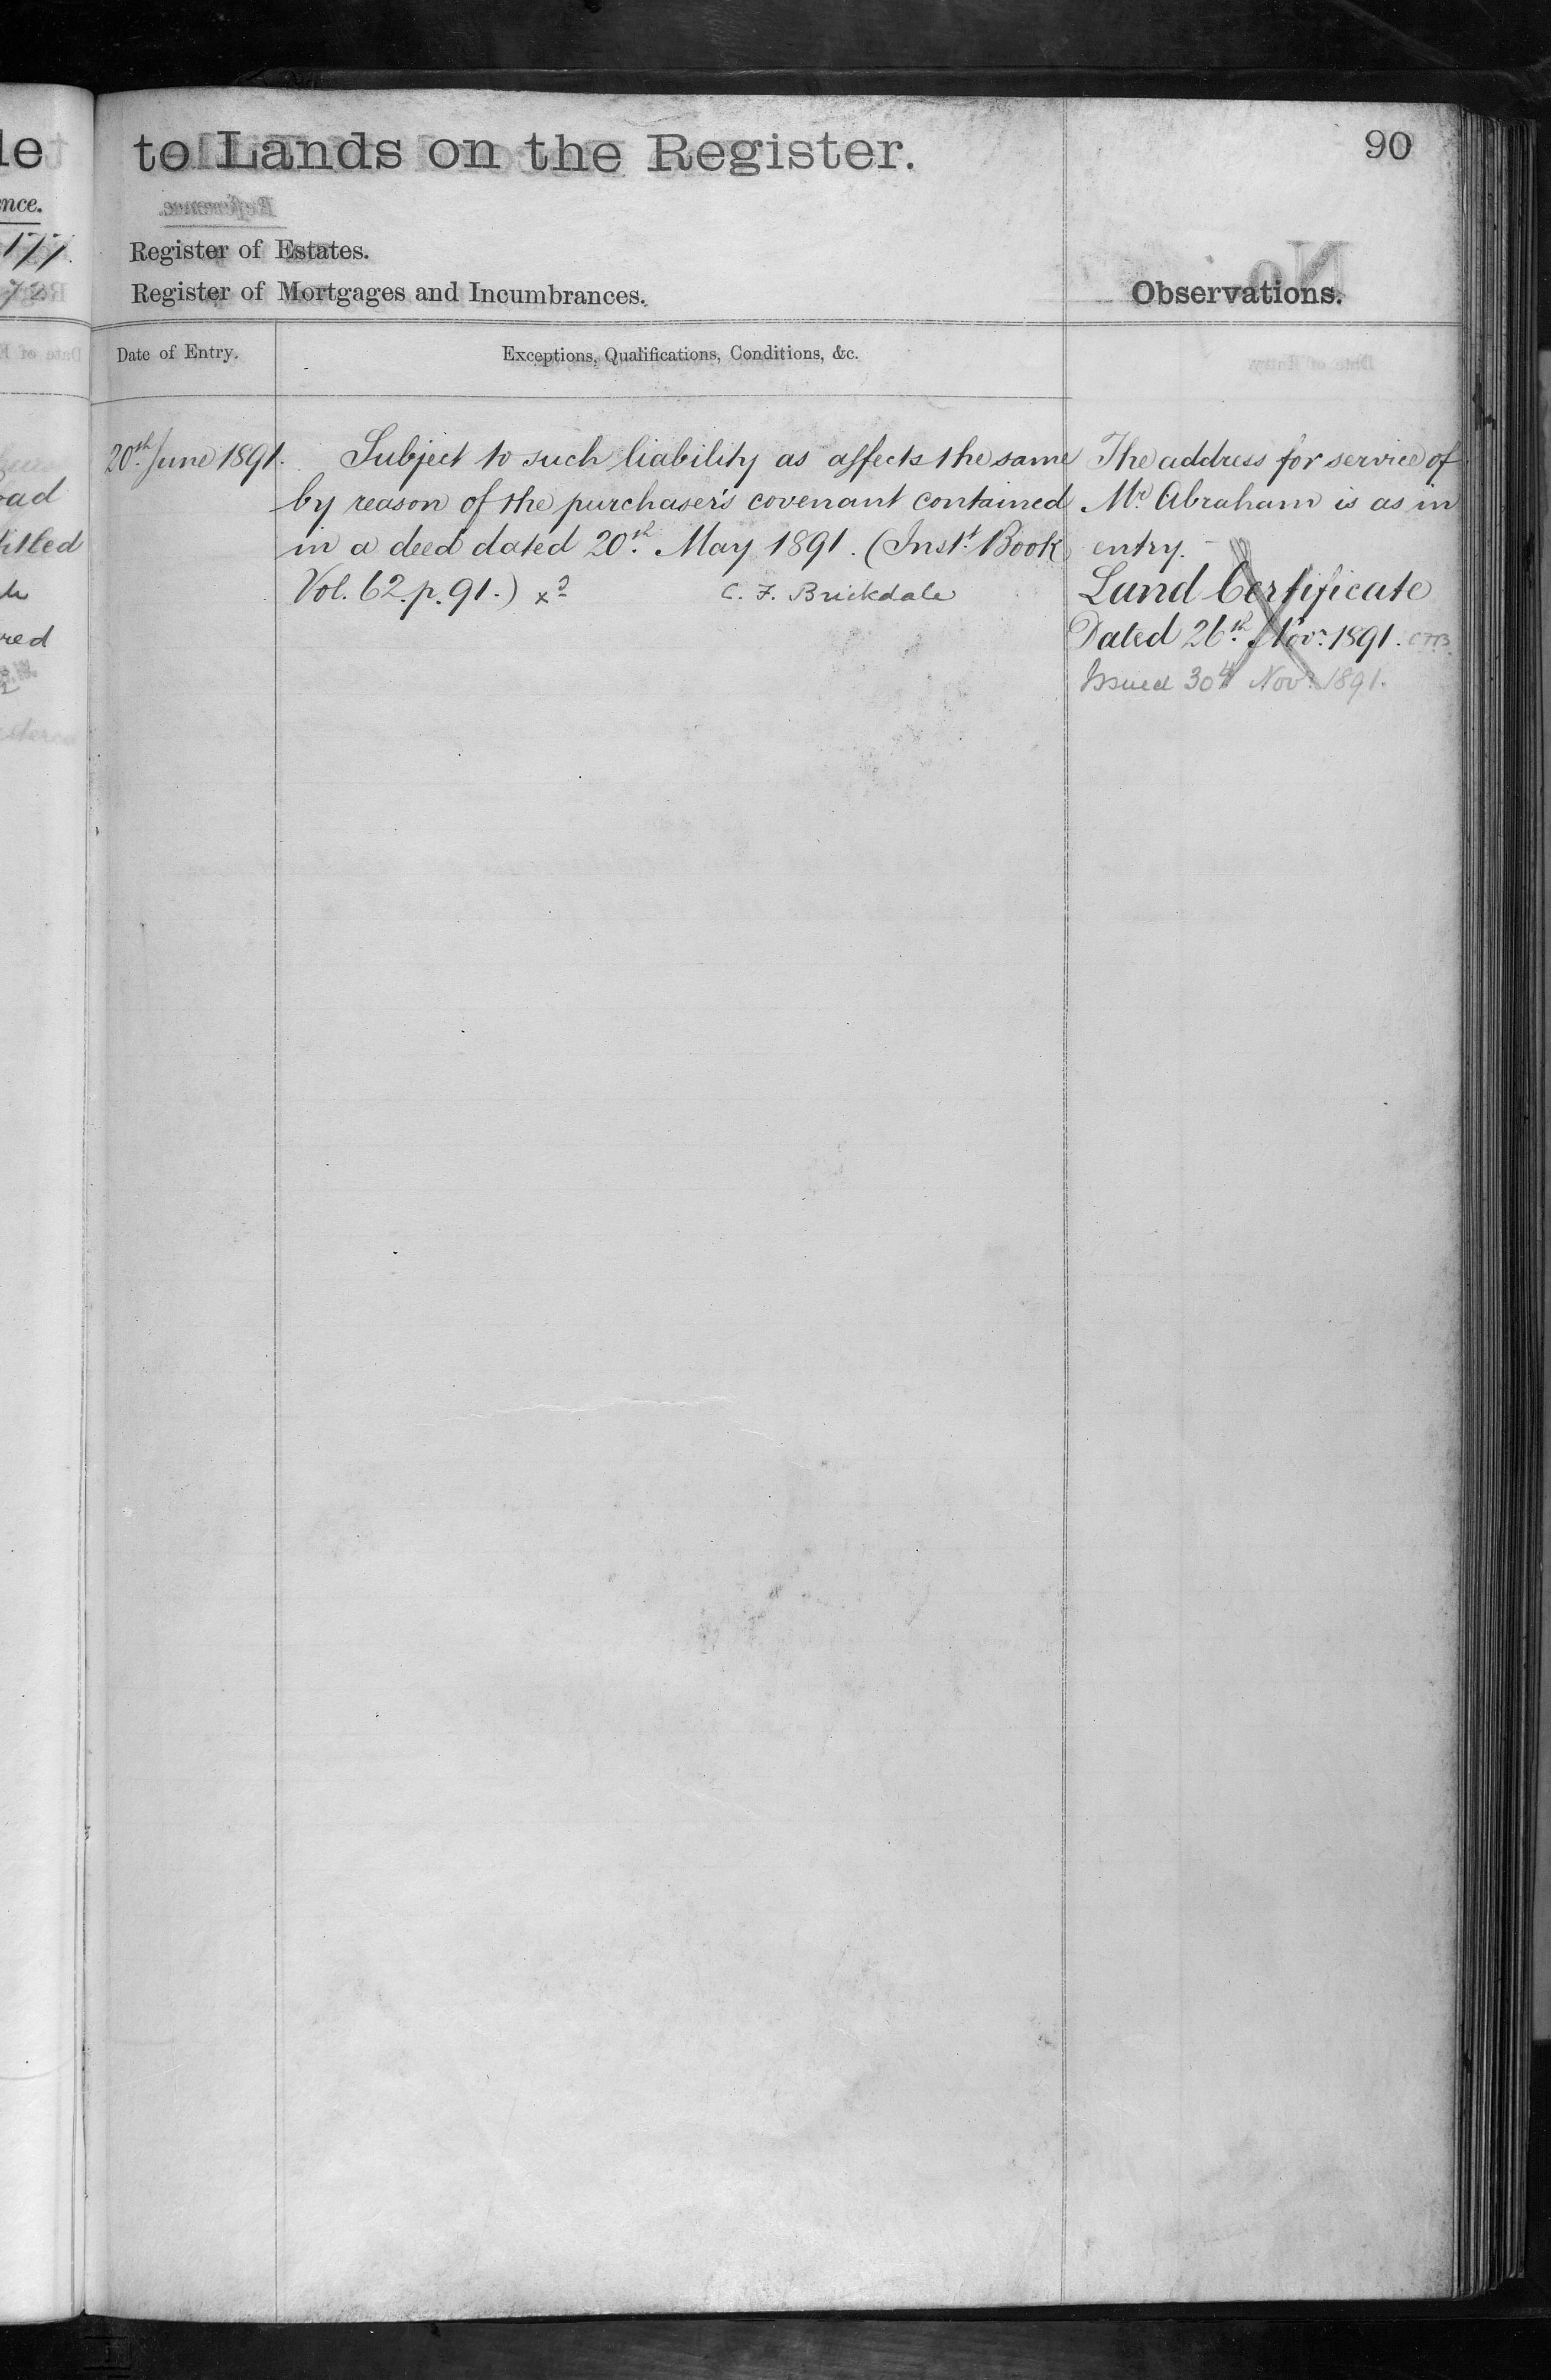 le
nce.
177.
72
oad
titled
red
to Lands on the Register.
90
Register of Estates.
Register of Mortgages and Incumbrances.
Observations.
Date of Entry.
Exceptions, Qualifications, Conditions, &c.
20th June 1891.
Subject to such liability as affects the same
by reason of the purchaser's covenant contained
in a deed dated 20th May 1891. (Inst. Book
Vol. 62. p. 91.)
C. F. Brickdale
The address for service of
Mr Abraham is as in
entry.
Land Certificate
Dated 26th Novr. 1891.
Issued 30th Novr. 1891.